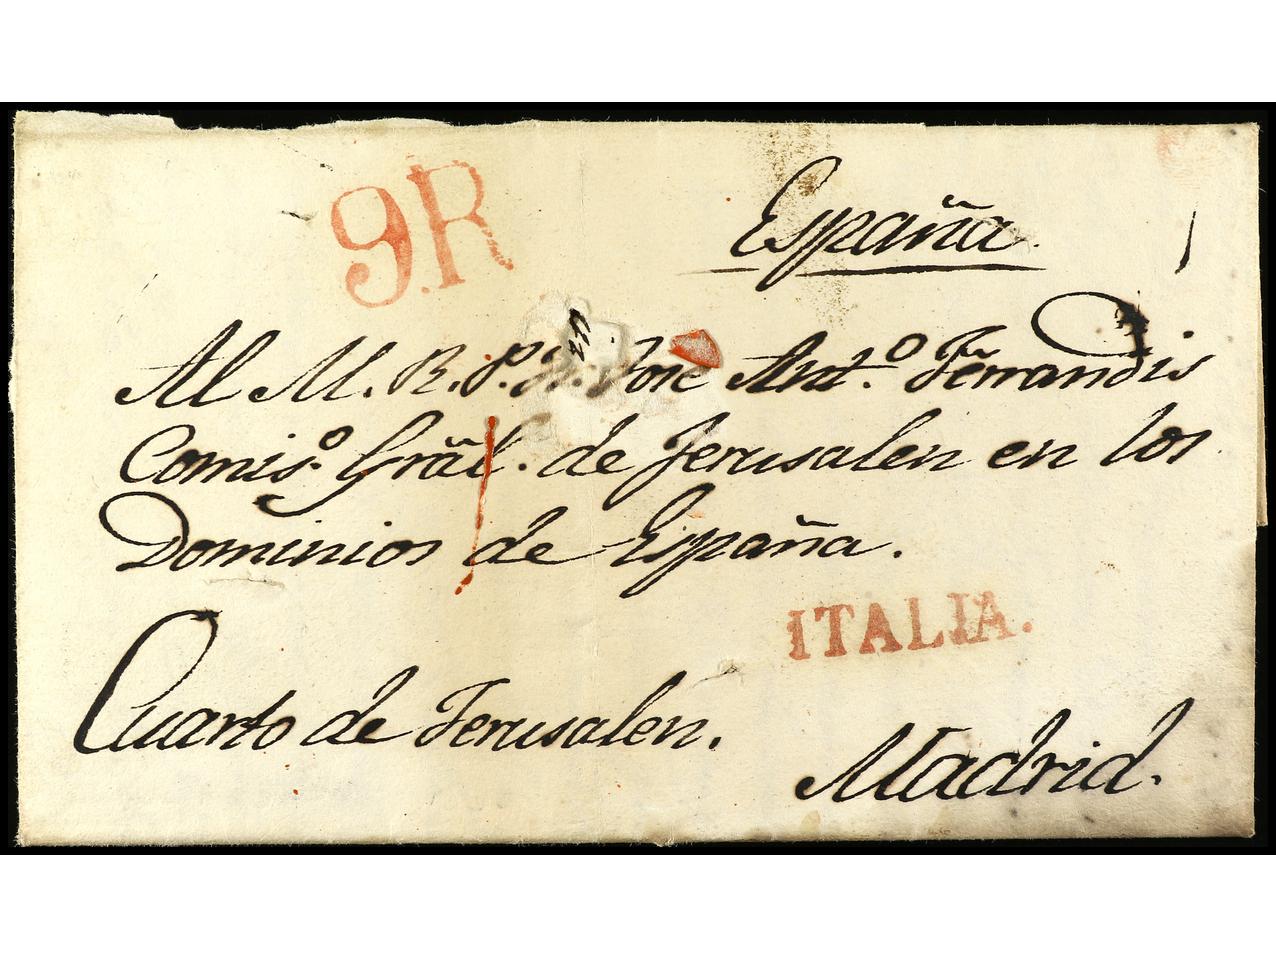 9.R
España.
Al M. R. P. Fr. José Ant.º Ferrandis
Comis.º Grãl. de Jerusalen en los
Dominios de España.
ITALIA.
Cuarto de Jerusalen.
Madrid.